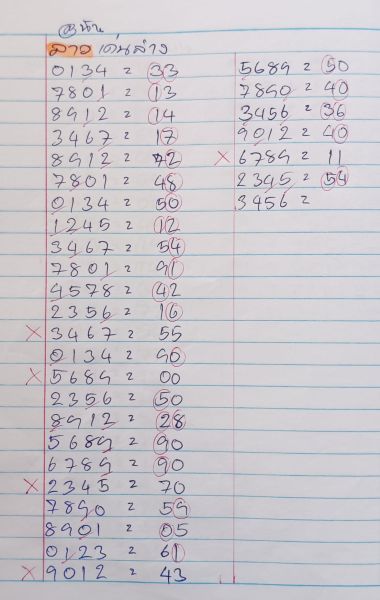 ลาว เด่นล่าง
0134 = 33
7801 = 13
8912 = 14
3467 = 17
8912 = 42
7801 = 48
0134 = 50
1245 = 12
3467 = 54
7801 = 91
4578 = 42
2356 = 16
× 3467 = 55
0134 = 90
× 5689 = 00
2356 = 50
8912 = 28
5689 = 90
6789 = 90
× 2345 = 70
7890 = 59
8901 = 05
0123 = 61
× 9012 = 43
5689 = 50
7890 = 40
3456 = 36
9012 = 40
× 6789 = 11
2345 = 54
3456 =